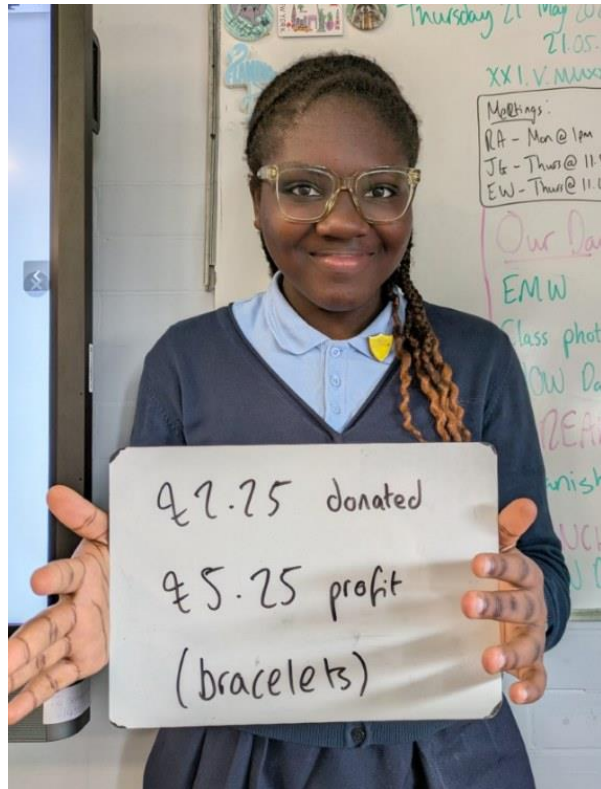 Thursday 21 May
21.05.
XXI.V.
Meetings:
RA - Mon @ 1pm
JG - Thurs @ 11.
EW - Thurs @ 11.
Our Da
EMW
Class phot
£2.25 donated
£5.25 profit
(bracelets)